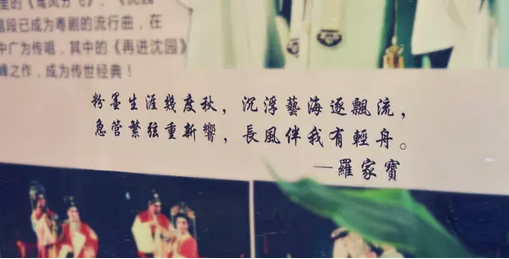 里的《鸾凤分飞》、《沈园
唱段已成为粤剧的流行曲，在
中广为传唱，其中的《再进沈园》
峰之作，成为传世经典！
粉墨生涯幾度秋，沉浮藝海逐飄流，
急管繁弦重新響，長風伴我有輕舟。
—羅家寶